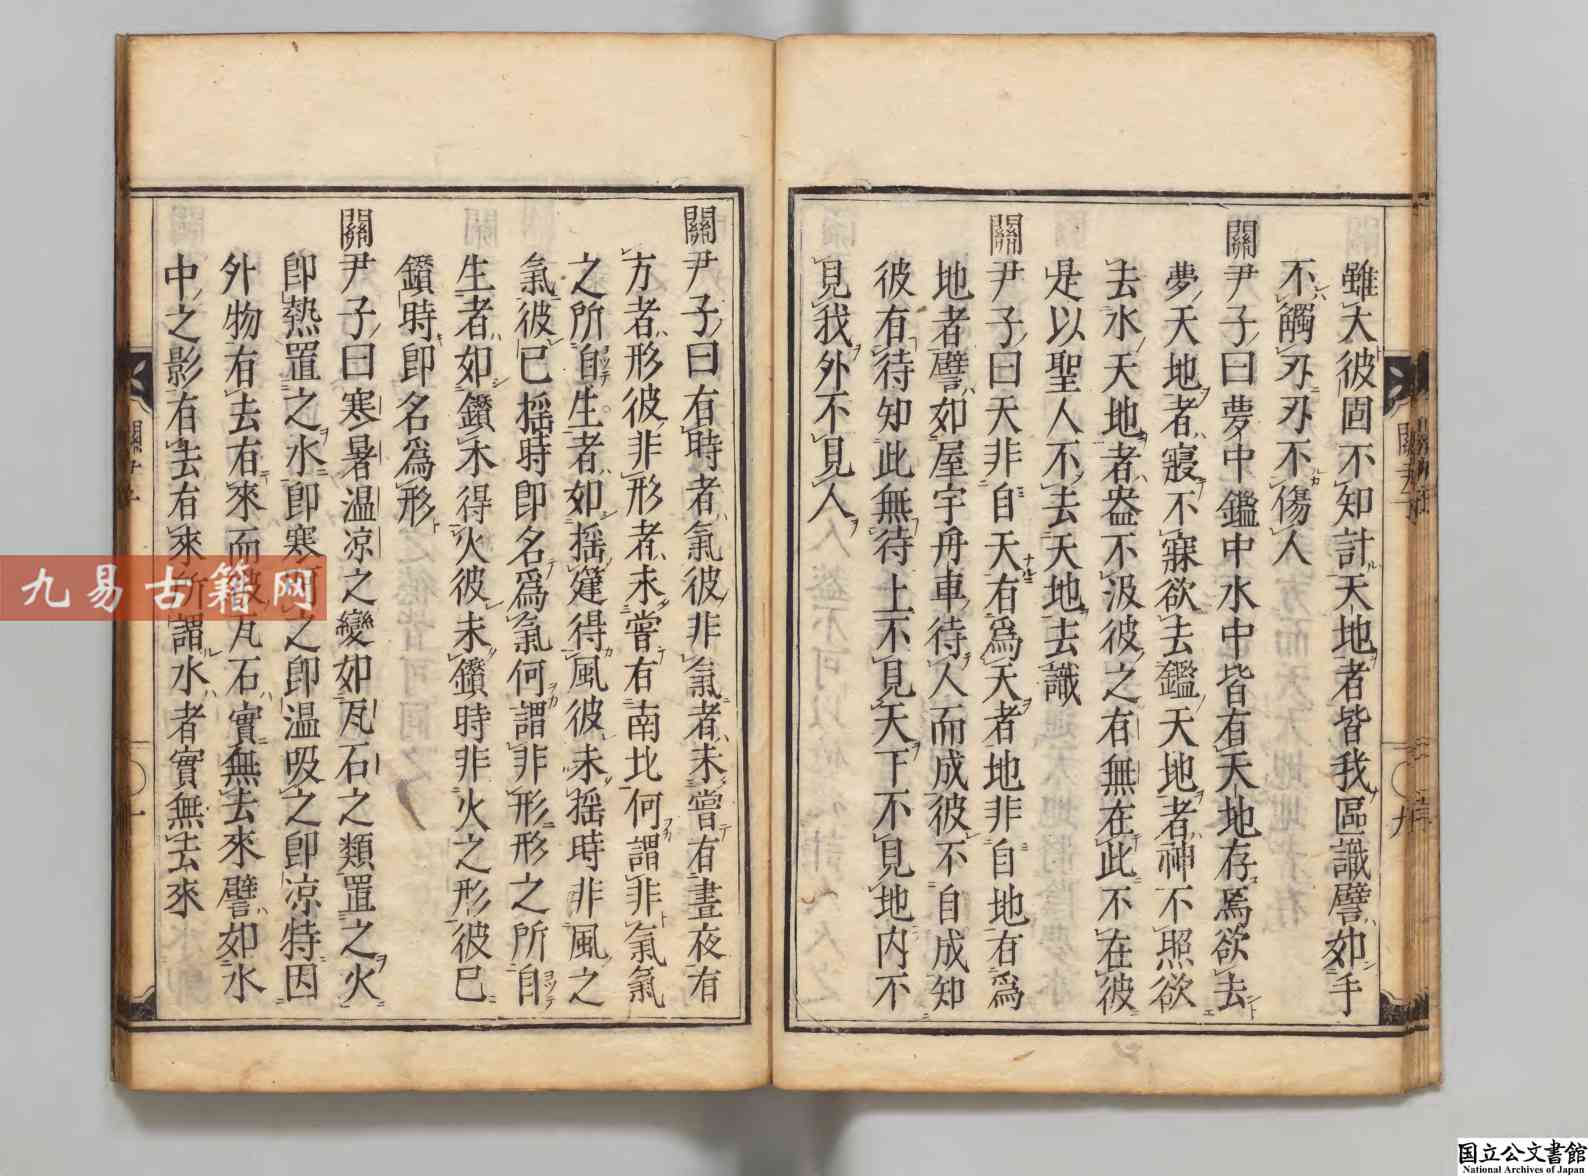 雖大彼固不知計天地者皆我區識譬如手
不觸刃刃不傷人
關尹子曰夢中鑑中水中皆有天地存焉欲去
夢天地者寢不寐欲去鑑天地者神不照欲
去水天地者盎不汲彼之有無在此不在彼
是以聖人不去天地去識
關尹子曰天非自天有爲天者地非自地有爲
地者譬如屋宇舟車待人而成彼不自成知
彼有待知此無待上不見天下不見地内不
見我外不見人
關尹子曰有時者氣彼非氣者未嘗有晝夜有
方者形彼非形者未嘗有南北何謂非氣氣
之所自生者如搖箑得風彼未搖時非風之
氣彼已搖時卽名爲氣何謂非形形之所自
生者如鑽木得火彼未鑽時非火之形彼已
鑽時卽名爲形
關尹子曰寒暑温凉之變如瓦石之類置之火
卽熱置之水卽寒呵之卽温吸之卽凉特因
外物有去有來而彼瓦石實無去來譬如水
中之影有去有來所謂水者實無去來
九易古籍网
国立公文書館
National Archives of Japan